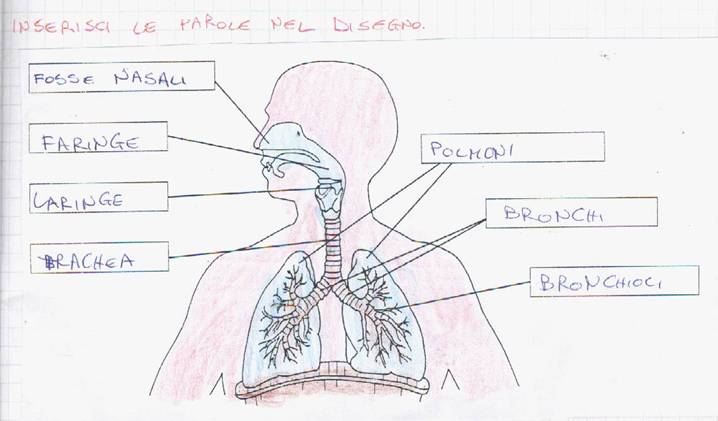 INSERISCI LE PAROLE NEL DISEGNO.
FOSSE NASALI
FARINGE
LARINGE
TRACHEA
POLMONI
BRONCHI
BRONCHIOLI